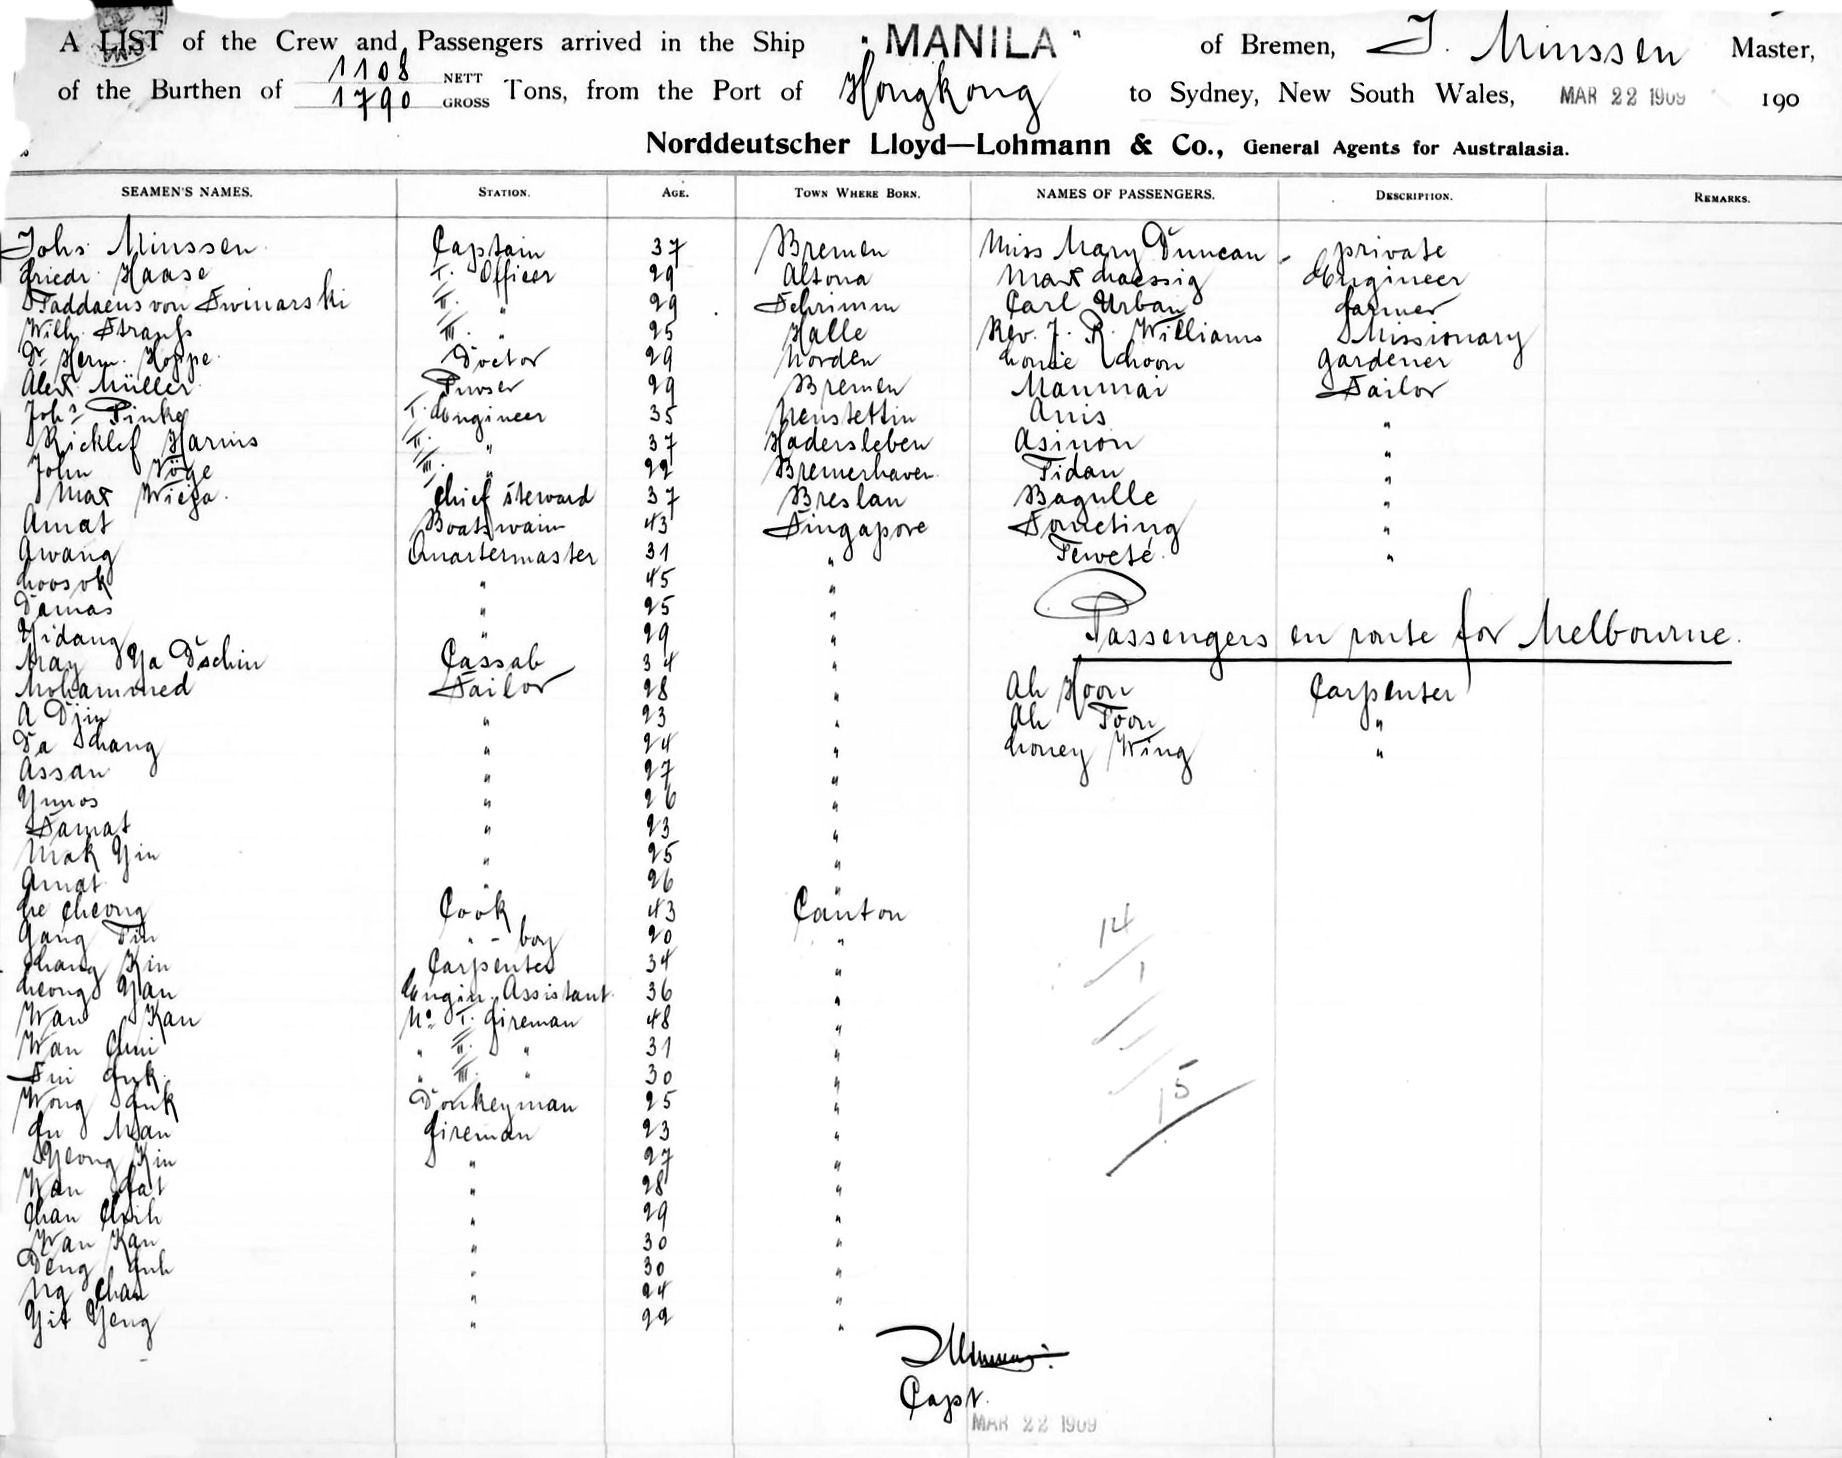 A LIST of the Crew and Passengers arrived in the Ship "MANILA" of Bremen, J. Minssen Master,
of the Burthen of 1108 NETT 1790 GROSS Tons, from the Port of Hongkong to Sydney, New South Wales, MAR 22 1909 190
Norddeutscher Lloyd—Lohmann & Co., General Agents for Australasia.
SEAMEN'S NAMES. STATION. AGE. TOWN WHERE BORN. NAMES OF PASSENGERS. DESCRIPTION. REMARKS.
Johs. Minssen Captain 37 Bremen Miss Mary Duncan private
Friedr. Haase I. Officer 29 Altona Max Engineer
Taddaeus von Swinarski II. " 29 Schrimm Carl Urban Farmer
Wilh. Strauß III. " 25 Halle Rev. J. R. Williams Missionary
Dr. Herm. Hoppe Doctor 29 Norden Choon Gardener
Alex Müller Purser 29 Bremen Maumai Sailor
Johs Pinke I. Engineer 35 Neustettin Anis "
Ricklef Harms II. " 37 Hadersleben Asinon "
John Vöge III. " 22 Bremerhaven Tidan "
Max Chief steward 37 Breslau Bagulle "
Amat Boatswain 43 Singapore Soneting "
Awang Quartermaster 31 " Tewete. "
Loosok " 45 "
Damas " 25 "
Yidang " 29 " Passengers en route for Melbourne.
May Ya Dschin Cassab 34 "
Mohammed Sailor 28 " Ah Hoon Carpenter
A Djin " 23 " Ah Toon "
Da Shang " 24 " Loney Wing "
Assan " 27 "
Yunos " 26 "
Samat " 23 "
Mok Yin " 25 "
Amat " 26 "
Le Cheong Cook 43 Canton
Gang Tin " - boy 20 "
Chang Kin Carpenter 34 "
Leong Yau Engin. Assistant 36 "
Wan Kau No. I. Fireman 48 "
Wan Chui " II. " 31 "
Sui Fuk " III. " 30 "
Wong Fuk Donkeyman 25 "
Fu Man Fireman 23 "
Yeong Kin " 27 "
Wan Fat " 28 "
Chan Chih " 29 "
Wan Kau " 30 "
Deng " 30 "
Ng Chan " 24 "
Yit Yeng " 22 "
14
1
15
Minssen
Capt.
MAR 22 1909